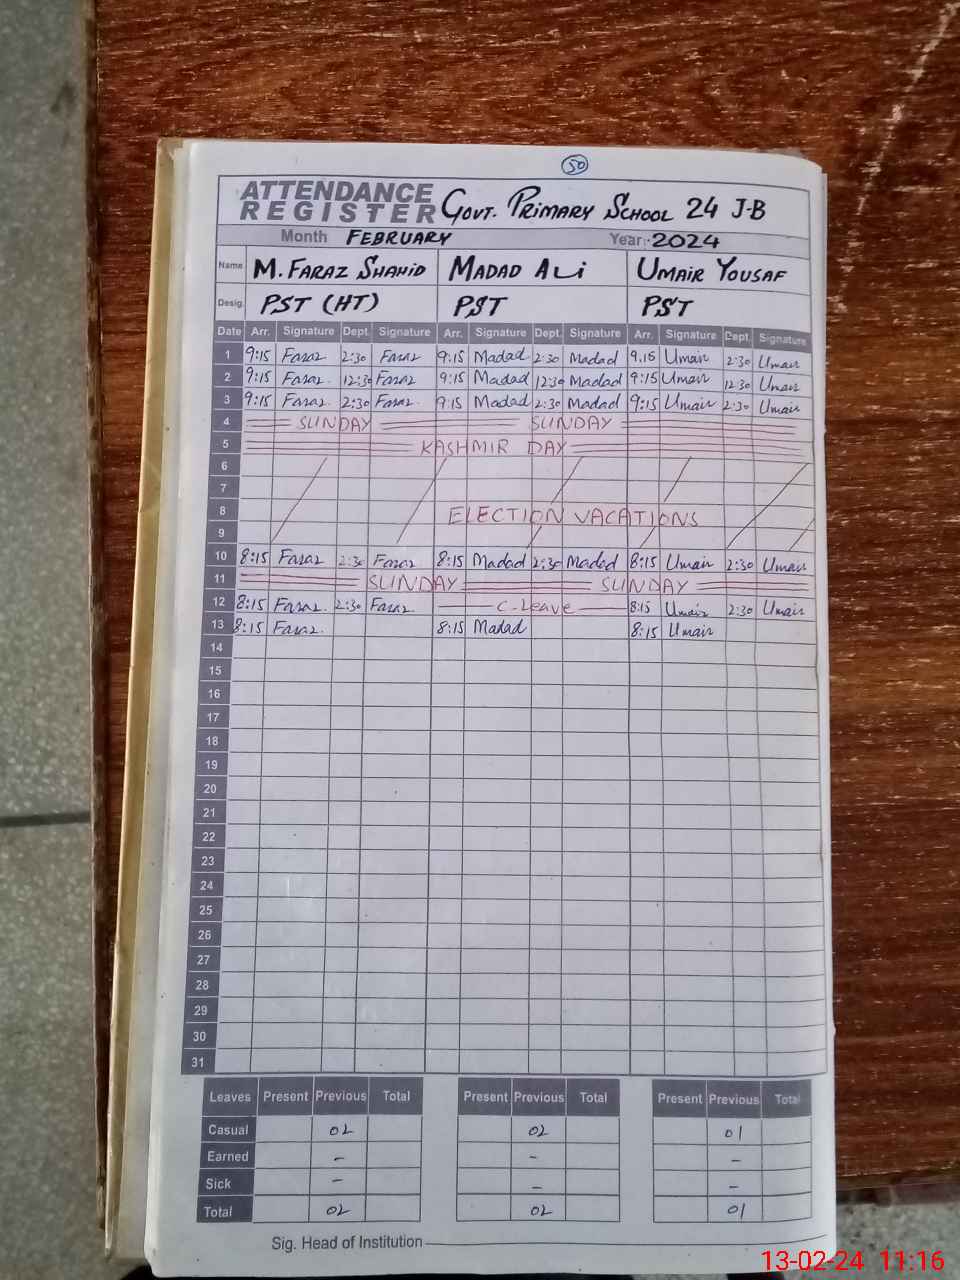 50
ATTENDANCE REGISTER GOVT. PRIMARY SCHOOL 24 J-B
Month FEBRUARY Year:- 2024
Name M. FARAZ SHAHID MADAD ALI UMAIR YOUSAF
Desig. PST (HT) PST PST
Date Arr. Signature Dept. Signature Arr. Signature Dept. Signature Arr. Signature Dept. Signature
1 9:15 Faraz 2:30 Faraz 9:15 Madad 2:30 Madad 9.15 Umair 2:30 Umair
2 9:15 Faraz. 12:30 Faraz 9:15 Madad 12:30 Madad 9:15 Umair 12:30 Umair
3 9:15 Faraz. 2:30 Faraz. 9:15 Madad 2:30 Madad 9:15 Umair 2:30 Umair
4 SUNDAY SUNDAY
5 KASHMIR DAY
6
7
8 ELECTION VACATIONS
9
10 8:15 Faraz 2:30 Faraz 8:15 Madad 2:30 Madad 8:15 Umair 2:30 Umair
11 SUNDAY SUNDAY
12 8:15 Faraz. 2:30 Faraz. C-Leave 8:15 Umair 2:30 Umair
13 8:15 Faraz. 8:15 Madad 8:15 Umair
14
15
16
17
18
19
20
21
22
23
24
25
26
27
28
29
30
31
Leaves Present Previous Total Present Previous Total Present Previous Total
Casual 02 02 01
Earned - - -
Sick - - -
Total 02 02 01
Sig. Head of Institution
13-02-24 11:16